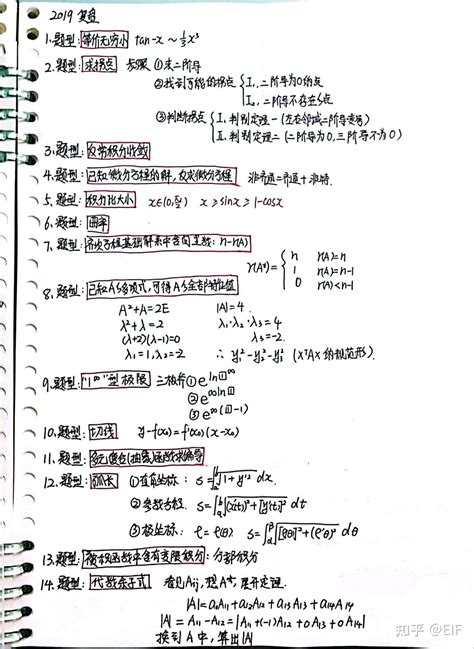 2019 复盘
1.题型:等价无穷小 tan-x ~ ⅓x³
2.题型:求拐点 步骤 ①求二阶导
②找到可能的拐点 { I₁.二阶导为0的点
I₂.二阶导不存在的点
③判断拐点 { I.判别定理一(左右邻域二阶导变号)
II.判别定理二(二阶导为0,三阶导不为0)
3.题型:反常积分收敛
4.题型:已知微分方程的解,反求微分方程 非齐通=齐通+非特.
5.题型:积分比大小 x∈(0,π/2) x≥sinx≥1-cosx
6.题型:曲率
7.题型:齐次方程基础解系中含向量数:n-r(A)
r(A*)= { n r(A)=n
1 r(A)=n-1
0 r(A)<n-1
8.题型:已知A的多项式,可得A的全部特征值
A²+A=2E |A|=4.
λ²+λ=2 λ₁·λ₂·λ₃=4
(λ+2)(λ-1)=0 λ₃=-2.
λ₁=1,λ₂=-2 ∴ y₁²-y₂²-y₃² (xᵀAx的规范形)
9.题型:"1^∞"型极限 三板斧①e^ln□^∞
②e^∞ln□
③e^∞(□-1)
10.题型:切线 y-f(x₀)=f'(x₀)(x-x₀)
11.题型:多元复合(抽象)函数求偏导
12.题型:弧长 ①直角坐标:s=∫ₐᵇ√1+y'² dx.
②参数方程. s=∫ₐᵇ√[x'(t)]²+[y'(t)]² dt
③极坐标: ρ=ρ(θ). s=∫_α^β√[ρ(θ)]²+(ρ'θ)² dθ
13.题型:被积函数中含有变限积分:分部积分
14.题型:代数余子式 看见Aij,想A*,展开定理.
|A|=a₁₁A₁₁+a₁₂A₁₂+a₁₃A₁₃+a₁₄A₁₄
|A|=A₁₁-A₁₂=|A₁₁+(-1)A₁₂+0A₁₃+0A₁₄|
换到A中,算出|A|
知乎 @EIF